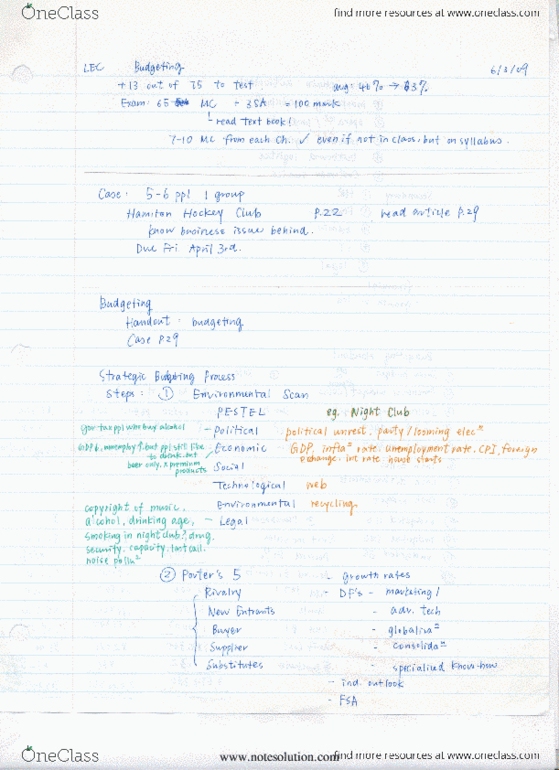 OneClass
find more resources at www.oneclass.com
LEC Budgeting 6/3/09
+13 out of 75 to test avg: 46% → 63%
Exam: 65 MC + 3SA = 100 mark
read text book!
7-10 MC from each Ch. ✓ even if not in class, but on syllabus.
Case: 5-6 ppl 1 group
Hamilton Hockey Club P.22 read article P.29
know business issue behind.
Due Fri April 3rd.
Budgeting
Handout - budgeting
Case P.29
Strategic Budgeting Process
Steps: ① Environmental Scan
PESTEL eg. Night Club
gov tax ppl won buy alcohol - Political political unrest, party/looming elec
GDP↓, unemploy ↑ but ppl still like to drink. but beer only, x premium products Economic - GDP, infla rate, unemployment rate, CPI, foreign exchange, int rate house starts
Social
Technological web
Environmental recycling
copyright of music,
alcohol, drinking age, - Legal
smoking in night club?, drug,
security, capacity, last call,
noise pollu
② Porter's 5 - growth rates
Rivalry - DF's - marketing /
New Entrants - adv. tech
Buyer - globaliza
Supplier - consolida
Substitutes - specialized know-how
- ind. outlook
- FSA
OneClass
www.notesolution.com
find more resources at www.oneclass.com